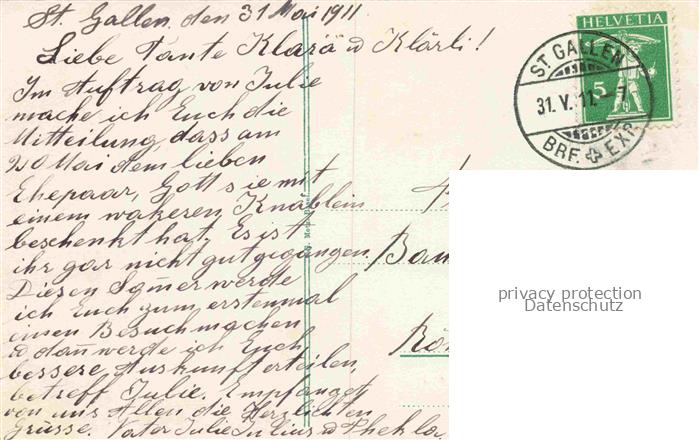 St. Gallen, den 31 Mai 1911
Liebe Tante Klara u Klärli!
Im Auftrag von Julie
mache ich Euch die
Mitteilung, dass am
20 Mai dem lieben
Ehepaar, Gott sie mit
einem wakeren Knäblein
beschenkt hat. Es ist
ihr gar nicht gut gegangen.
Diesen Som̅er werde
ich Euch zum erstenmal
einen Besuch machen
u dan̅ werde ich Euch
bessere Auskunft erteilen,
betreff Julie. Empfanget
von uns Allen die Herzlichsten
Grüsse. Vater Julie Julius u Thekla
HELVETIA
5
ST. GALLEN
31. V. 11. – 7
BRF. EXP.
privacy protection
Datenschutz